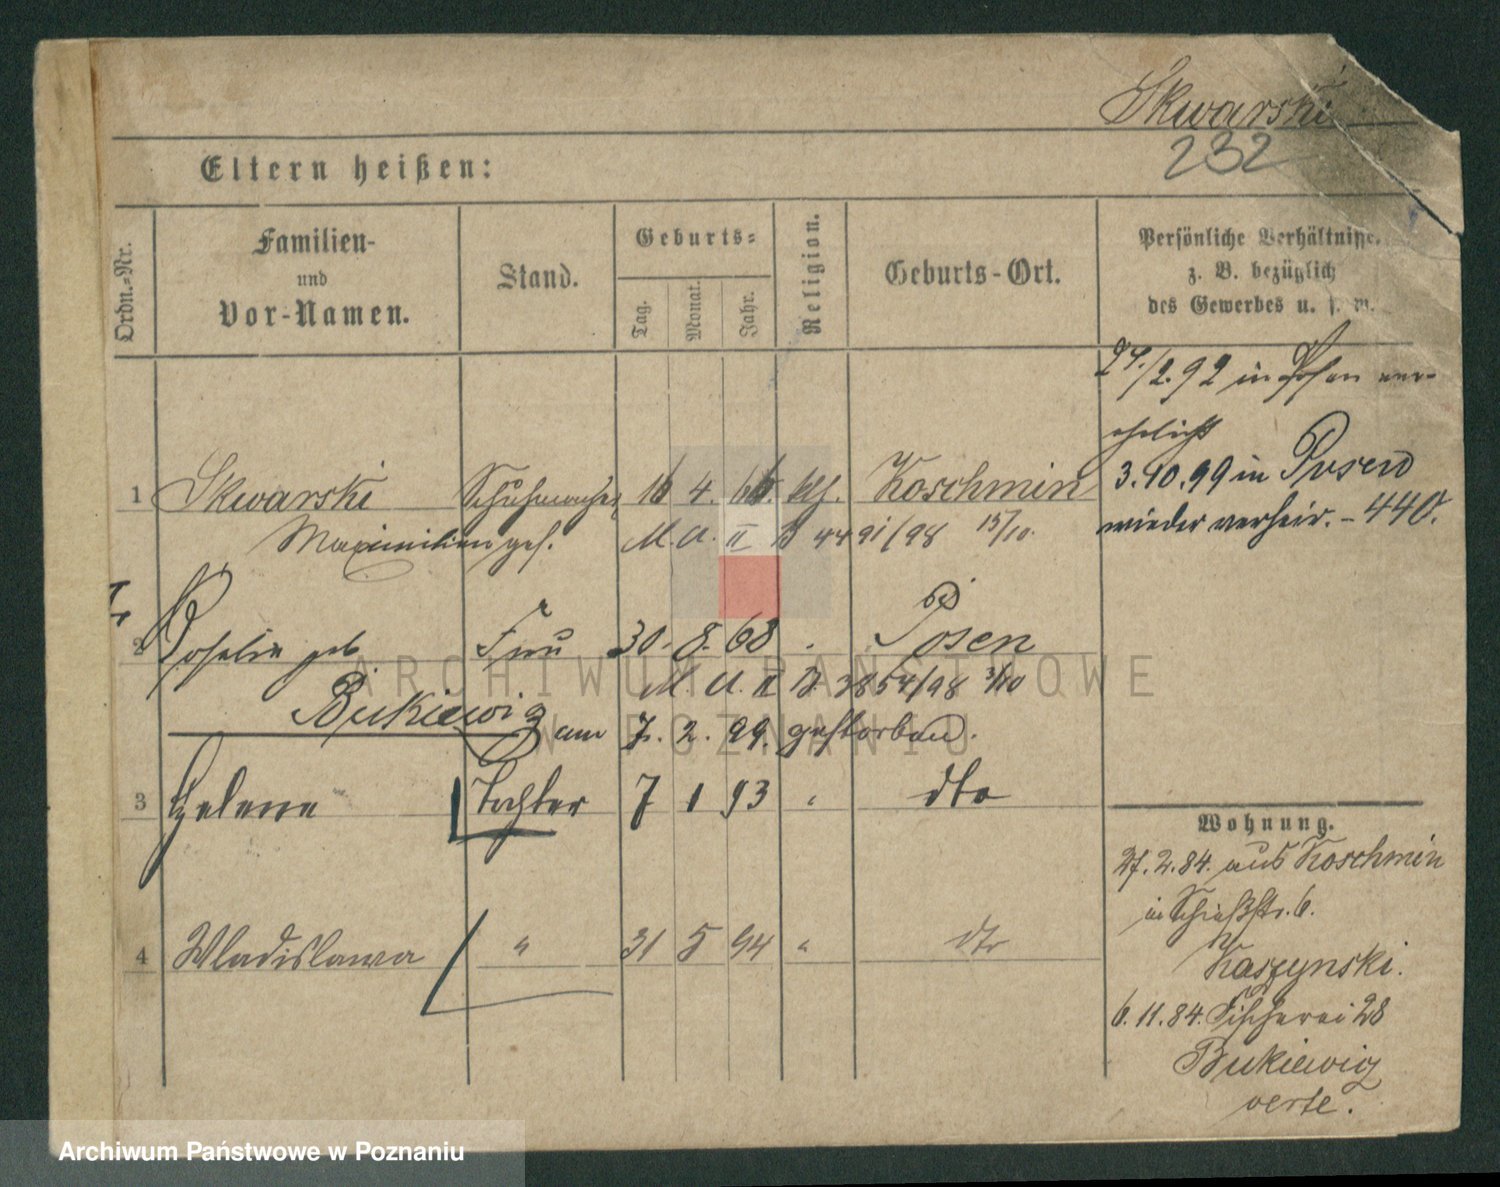 Skwarski
232
Eltern heißen:
Ordn.-Nr.
Familien-
und
Vor-Namen.
Stand.
Geburts-
Tag.
Monat.
Jahr.
Religion.
Geburts-Ort.
Persönliche Verhältnisse
z. B. bezüglich
des Gewerbes u. s. w.
24./2.92 in Posen ver-
ehelicht
3.10.99 in Posen
wieder verheir. - 440.
1 Skwarski Schuhmacher 16 4. 66. kth. Koschmin
Maximilian ges. M. A. II B 4491/98 15/10.
2 Rosalie geb Frau 30. 8. 68 Posen
Bukiewicz M. A. II B. 3854/98
am 7. 2. 99. gestorben.
3 Helene Tochter 7 1 93 " dto
4 Wladislawa " 31 5 94 " dto
Wohnung.
27.2.84. aus Koschmin
in Schießstr. 6.
Kaszynski.
6.11.84. Fischerei 28
Bukiewicz
verte.
ARCHIWUM PAŃSTWOWE
W POZNANIU
Archiwum Państwowe w Poznaniu